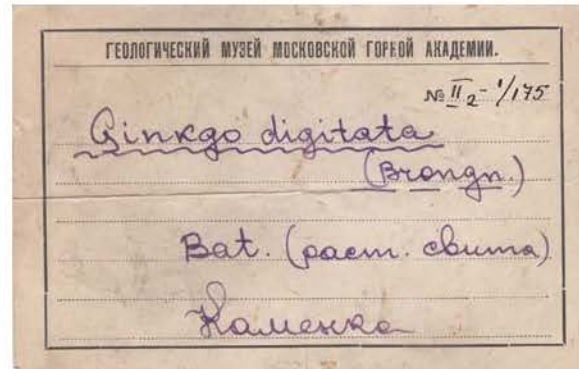 ГЕОЛОГИЧЕСКИЙ МУЗЕЙ МОСКОВСКОЙ ГОРНОЙ АКАДЕМИИ.
№ II2 - 1/175
Ginkgo digitata
(Brongn.)
Bat. (раст. свита)
Каменка